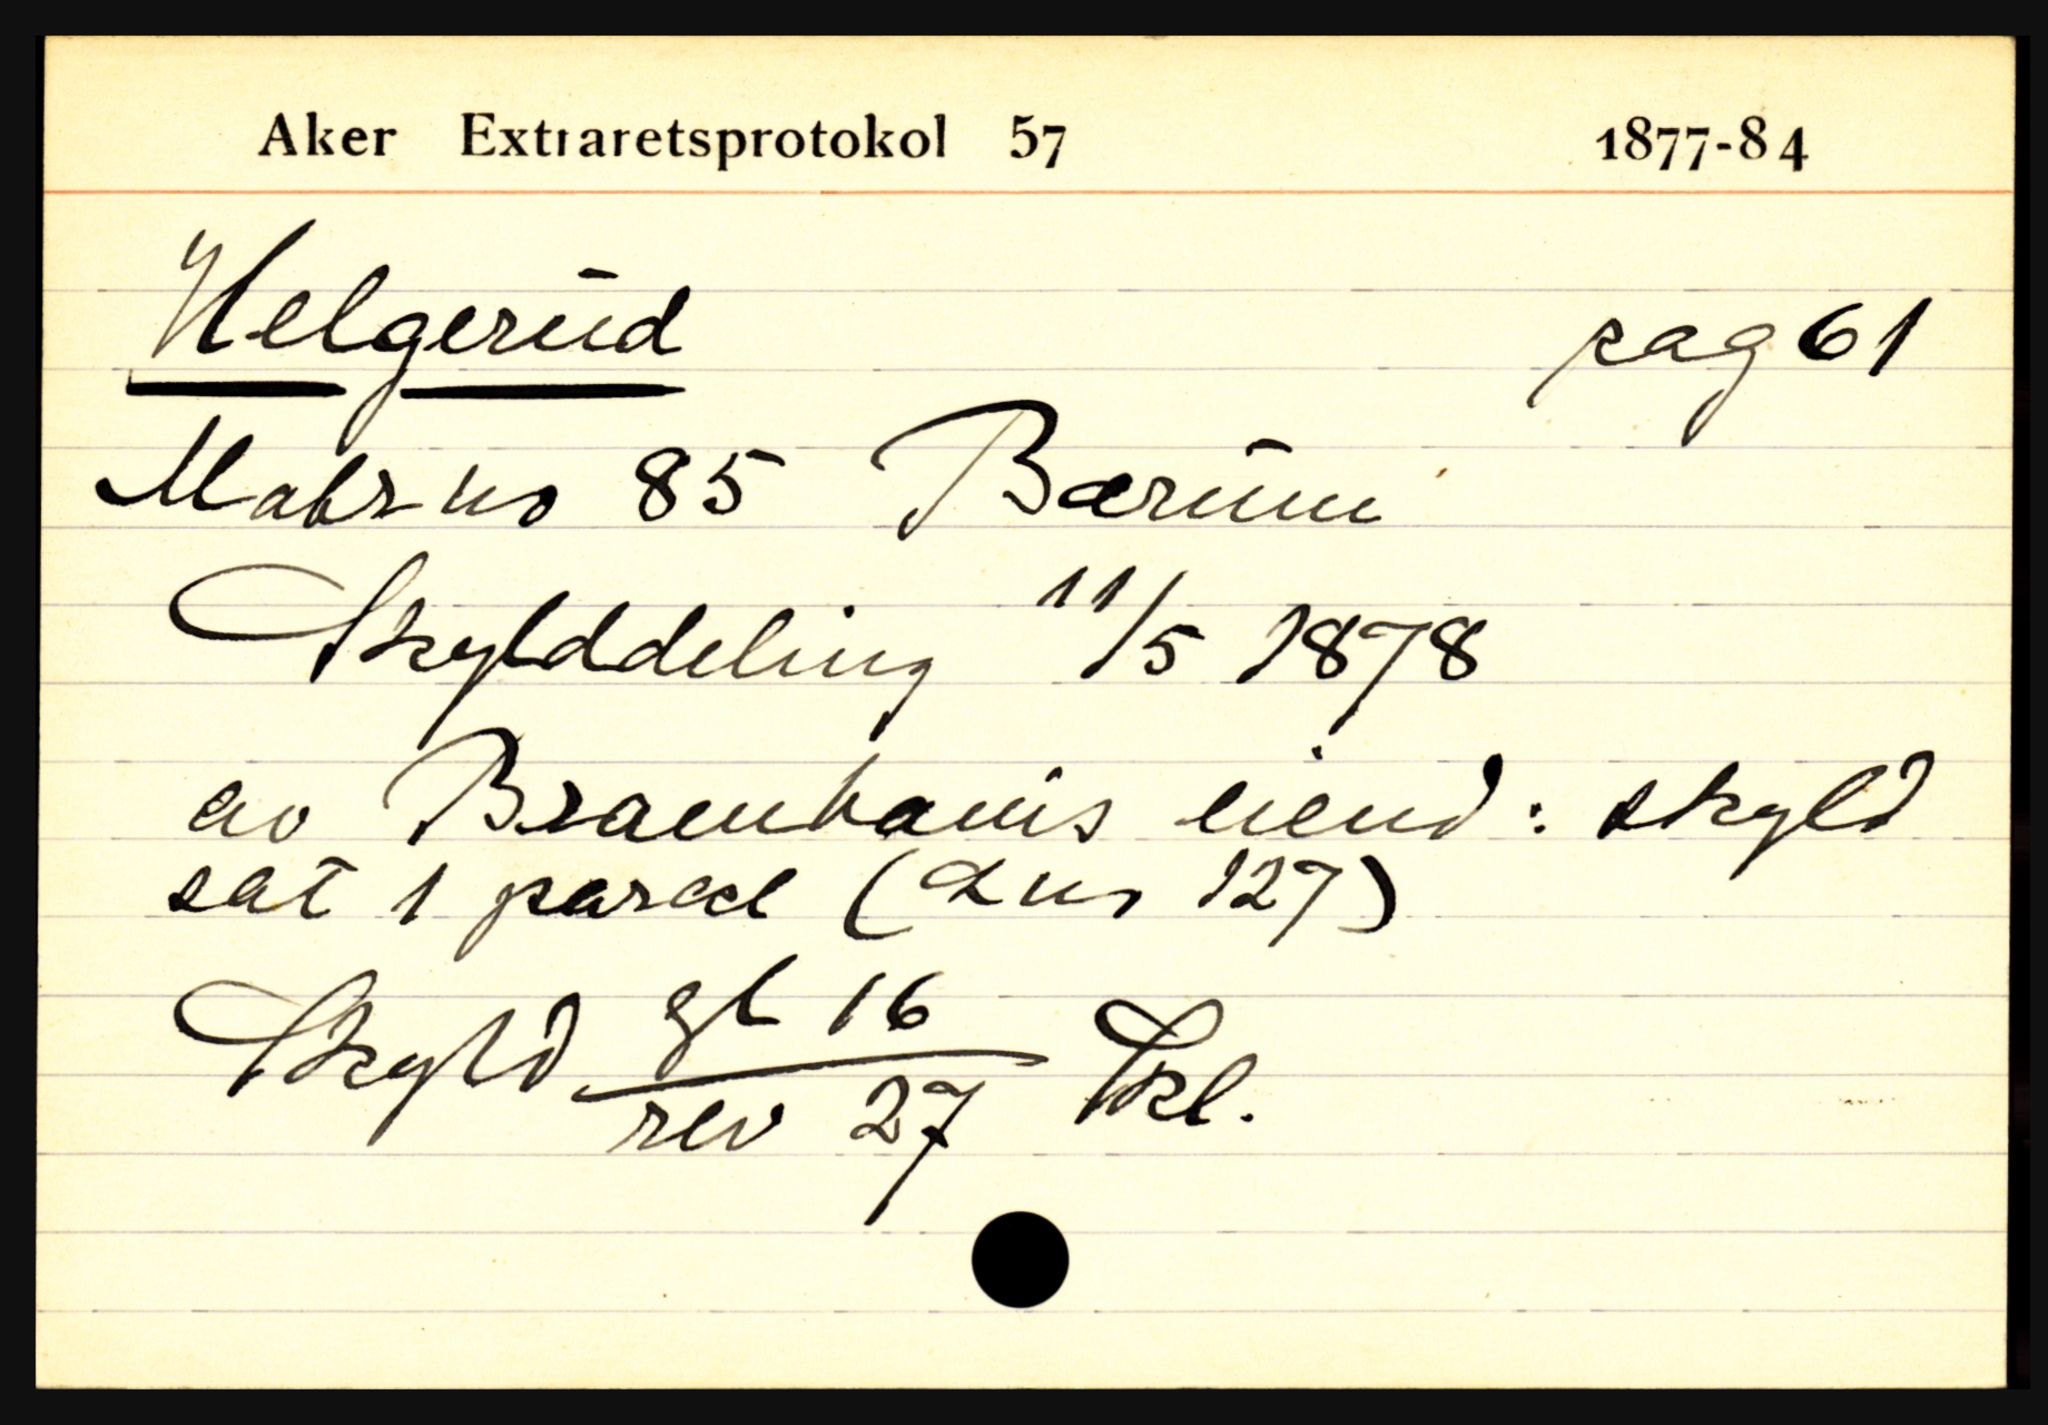 Aker Extraretsprotokol 57 1877-84
Helgerud pag 61
Matr no 85 Bærum
Skylddeling 11/5 1878
av eiend: skyld
sat 1 parcel (Lnr 127)
Skyld gl 16 / rev 27 Skl.